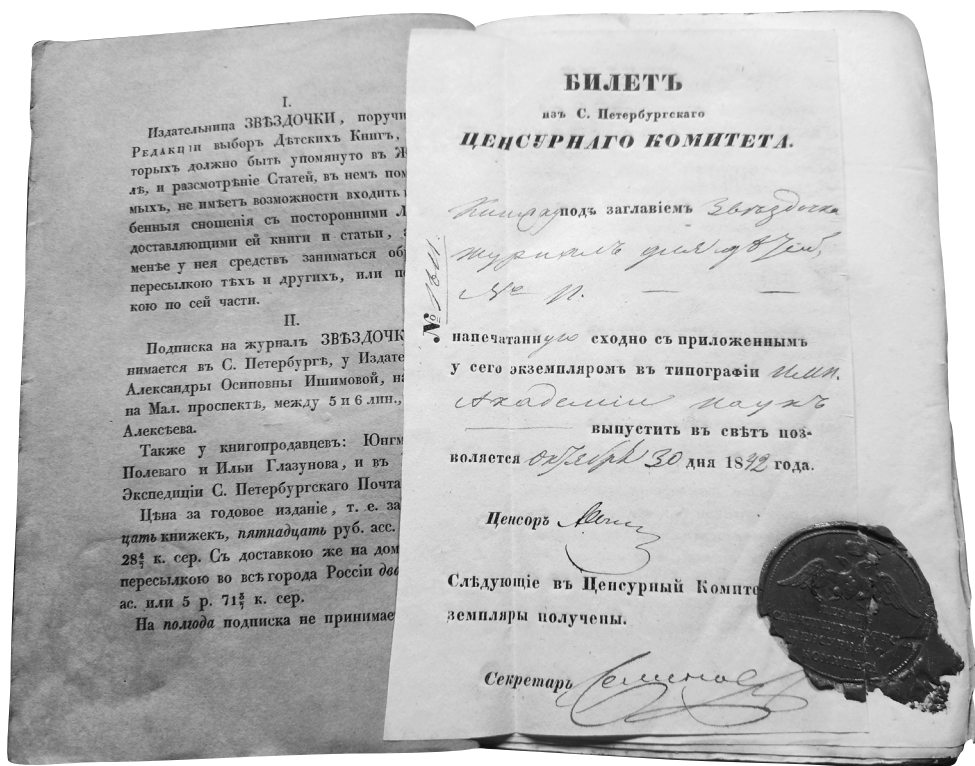 I.
Издательница ЗВѢЗДОЧКИ, поручи
РЕДАКЦІИ выборъ Дѣтскихъ Книгъ,
торыхъ должно быть упомянуто въ Ж
лѣ, и разсмотрѣніе Статей, въ немъ пом
мыхъ, не имѣетъ возможности входить
бенныя сношенія съ посторонними Л
доставляющими ей книги и статьи,
менѣе у нея средствъ заниматься об
пересылкою тѣхъ и другихъ, или пе
кою по сей части.
II.
Подписка на журналъ ЗВѢЗДОЧК
нимается въ С. Петербургѣ, у Издате
Александры Осиповны Ишимовой, н
на Мал. проспектѣ, между 5 и 6 лин.,
Алексѣева.
Также у книгопродавцевъ: Юнгм
Полеваго и Ильи Глазунова, и въ
Экспедиціи С. Петербургскаго Почта
Цѣна за годовое изданіе, т. е. за
цать книжекъ, пятнадцать руб. асс.
28 4/7 к. сер. Съ доставкою же на дом
пересылкою во всѣ города Россіи две
ас. или 5 р. 71 3/7 к. сер.
На полгода подписка не принимае
БИЛЕТЪ
изъ С. Петербургскаго
ЦЕНСУРНАГО КОМИТЕТА.
Книга подъ заглавіемъ Звѣздочка
журналъ для дѣтей,
№ 11.
№ 1611.
напечатанную сходно съ приложеннымъ
у сего экземпляромъ въ типографіи Имп.
Академіи наукъ
выпустить въ свѣтъ поз-
воляется октября 30 дня 1842 года.
Ценсоръ
Слѣдующіе въ Ценсурный Комите
земпляры получены.
Секретарь Семеновъ
ЦЕНСУРНАГО
КОМИТЕТА